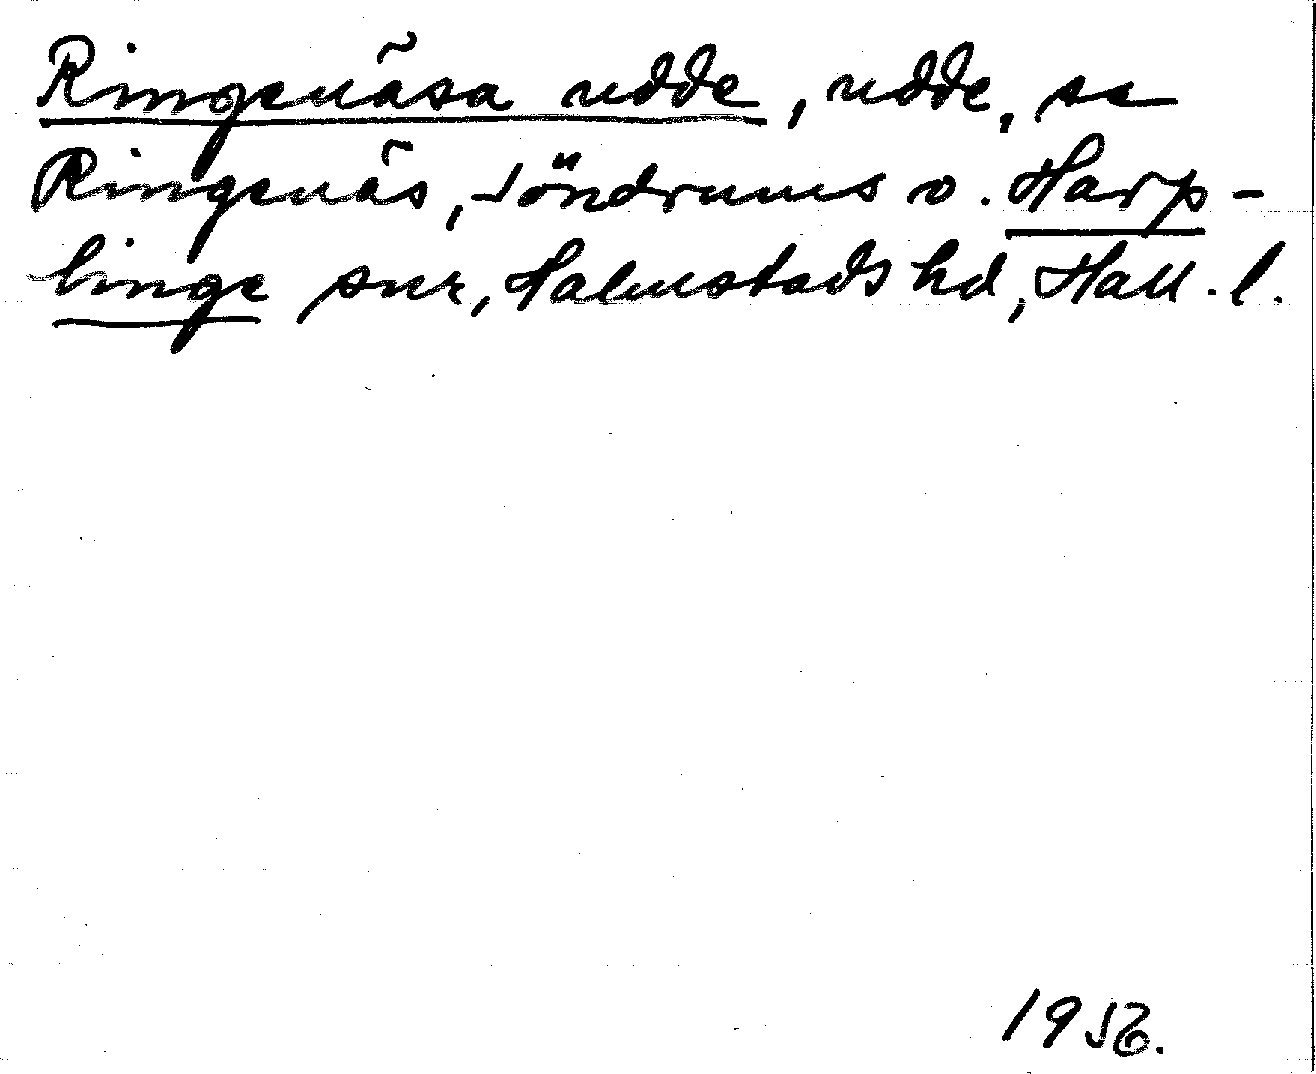 Ringenäsa udde, udde, se
Ringenäs, Söndrums o. Harp-
linge snr, Halmstads hd, Hall. l.
1956.